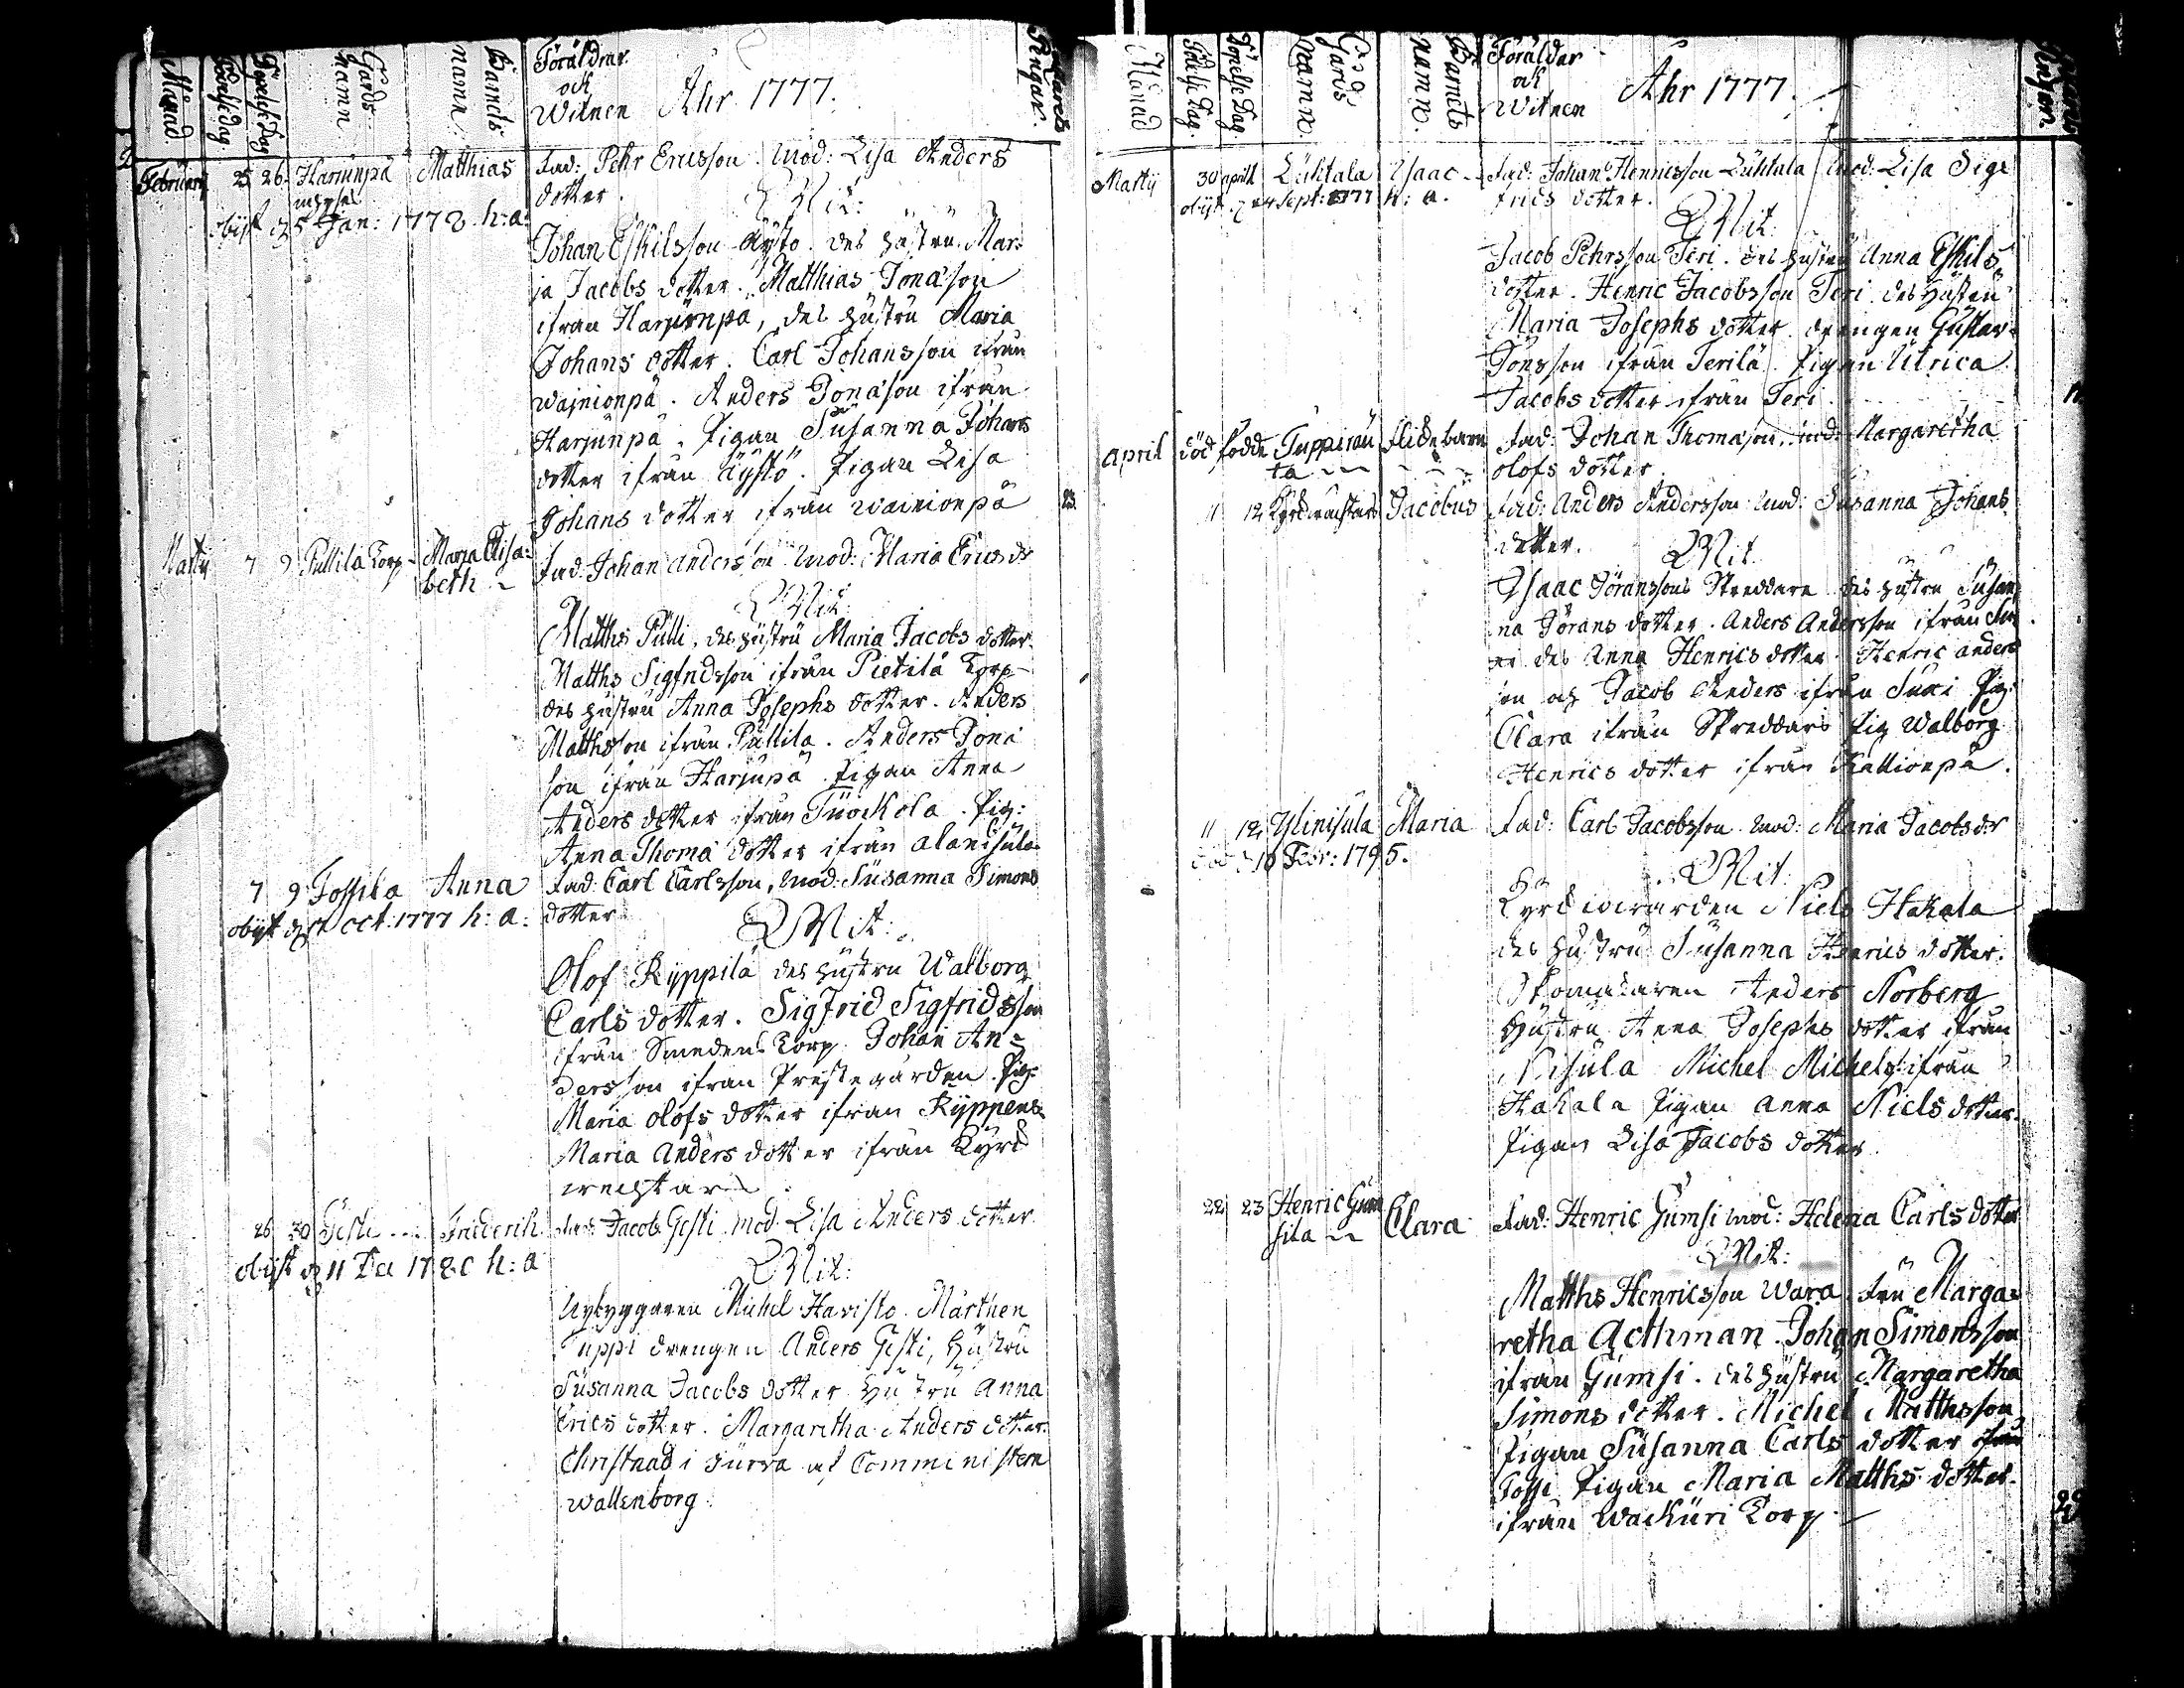 Månad.
Födelse Dag
Döpelse Dag
Gårds
Namn
Barnets
namn
Föräldrar
och
Witnen Ahr 1777.
Februarij 25 26 Harjunpä Matthias Fad: Pehr Ericsson. Mod: Lisa Anders
dotter.
obijt d. 5 Jan: 1778. h: a:
Wit:
Johan Eskilsson Äystö. des hustru Mar-
ja Jacobs dotter. Matthias Jonason
ifrån Harjunpä, des hustru Maria
Johans dotter. Carl Johansson ifrån
Wainionpä. Anders Jonason ifrån
Harjunpä. Pigan Susanna Johans
dotter ifrån Äystö. Pigan Lisa
Johans dotter ifrån Wainionpä
Martij 7 9 Pullila Torp Maria Elisa:
beth Fad: Johan Andersson Mod: Maria Erics dr
Wit:
Matths Pulli, des hustru Maria Jacobs dotter.
Matths Sigfridsson ifrån Pietilä Torp
des hustru Anna Josephs dotter. Anders
Matthsson ifrån Pullila. Anders Jona
son ifrån Harjupä Pigan Anna
Anders dotter ifrån Tuockola. Pig:
Anna Thoma dotter ifrån Alanisula
7 9 Fossila Anna Fad: Carl Carlsson, Mod: Susanna Simons
obijt d. 17 Oct. 1777 h: a: dotter
Wit:
Olof Ryppilä des hustru Walborg
Carls dotter. Sigfrid Sigfridsson
ifrån Smedens Torp. Johan An-
dersson ifrån Prestegården. Pig:
Maria Olofs dotter ifrån Ryppens
Maria Anders dotter ifrån Kyrc
26 30 Gesti Friderich Fad: Jacob Gesti Mod: Lisa Anders dotter
obijt d. 11 Dec 1780 h: a
Wit:
Nybyggaren Michel Havisto. Mårthen
Tuppi drengen Anders Gesti, Hustru
Susanna Jacobs dotter Hustru Anna
Erics dotter. Margaretha Anders dotter.
Christnad i af Comministern
Wallenborg.
Månad
Födelse Dag.
Döpelse Dag
Gårds
Namn.
Barnets
Namn.
Föräldar
och
Witnen Ahr 1777.
Martij 30 april 1 Luhtala Isaac Fad: Johan Henricsson Luhtala Mod: Lisa Sigf
obijt d. 24 Sept: 1777 h: a. frids dotter.
Wit:
Jacob Pehrsson Teri. des hustru Anna Eskils
dotter. Henric Jacobsson Teri des hustru
Maria Josephs dotter. drengen Gustav
Jönsson ifrån Terilä. Pigan Ulrica
Jacobs dotter ifrån Teri.
April död född Tuppirau
ta flicke barn Fad: Johan Thomason, mod: Margaretha
Olofs dotter.
11 12 Jacobus Fad: Anders Andersson Mod: Susanna Johans
dotter.
Wit
Isaac Göranssons Skreddare des hustru Susan
na Görans dotter. Anders Andersson ifrån
des Anna Henrics dotter. Henric anders
son och Jacob Anders ifrån Suxi Pig:
Clara ifrån Skreddars Pig Walborg
Henrics dotter ifrån Kallionpä.
11 12 Ylinisula Maria Fad: Carl Jacobsson. Mod: Maria Jacobs dr
död d. 18 Febr: 1795.
Wit:
Kyrckiowärden Niels Hakala
des hustru Susanna Henrics dotter.
Skomakaren Anders Norberg
Hustru Anna Josephs dotter ifrån
Nisula Michel Michels: ifrån
Hakala Pigan Anna Niels dotter.
Pigan Lisa Jacobs dotter
22 23 Henric Gum
sila Clara Fad: Henric Gumsi Mod: Helena Carls dotter
Wit:
Matths Henricsson Wara Fru Marga-
retha Acthman. Johan Simonsson
ifrån Gumsi. des hustru Margaretha
Simons dotter. Michel Matthsson
Pigan Susanna Carls dotter ifrån
Pigan Maria Matths dotter.
ifrån Wackuri Torp